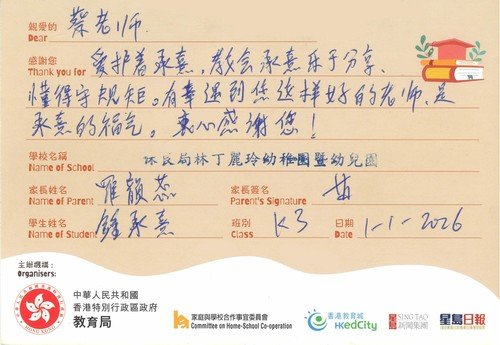 親愛的 蔡老师
Dear
感謝您 爱护着承熹,教会承熹乐于分享、
Thank you for
懂得守规矩。有幸遇到您这样好的老师,是
承熹的福气。衷心感谢您!
學校名稱
Name of School 保民局林丁麗玲幼稚園暨幼兒園
家長姓名 羅韻蕊 家長簽名
Name of Parent Parent's Signature
學生姓名 鍾承熹 班別 K3 日期 1-1-2026
Name of Student Class Date
主辦機構:
Organisers:
中華人民共和國
香港特別行政區政府
教育局
家庭與學校合作事宜委員會
Committee on Home-School Co-operation
香港教育城
HKedCity
星島 SING TAO
新聞集團
星島日報